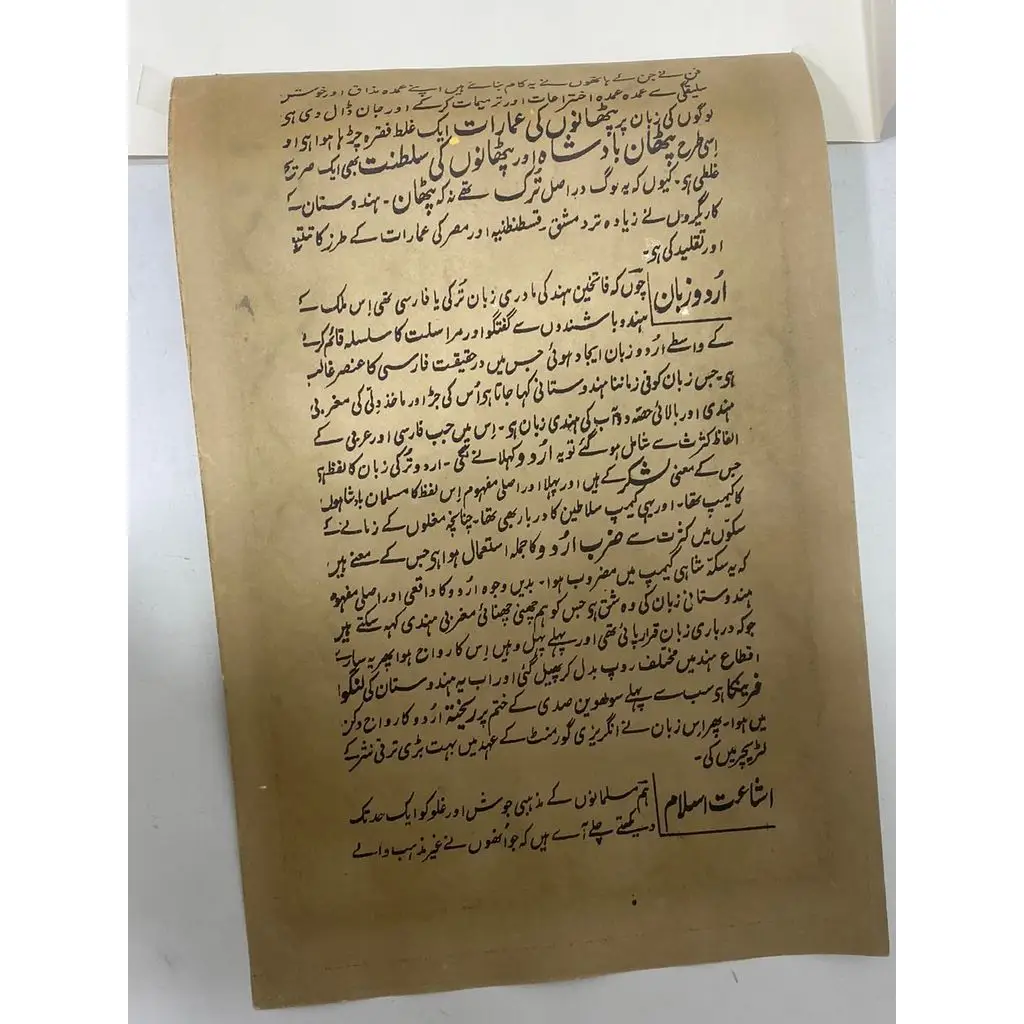 فن نے جن کے ہاتھوں نے یہ کام بنائے ہیں اپنے عمدہ مذاق اور خوش
سلیقگی سے عمدہ عمدہ اختراعات اور ترمیمات کرکے اور جان ڈال دی ہی
لوگوں کی زبان پر پٹھانوں کی عمارات ایک غلط فقرہ چڑھا ہوا ہی او
اِسی طرح پٹھان بادشاہ اور پٹھانوں کی سلطنت بھی ایک صریح
غلطی ہی۔ کیوں کہ یہ لوگ دراصل تُرک تھے نہ کہ پٹھان۔ ہندوستان کے
کاریگروں نے زیادہ تر دمشق۔ قسطنطنیہ اور مصر کی عمارات کے طرز کا تتبع
اور تقلید کی ہی۔
اُردو زبان چوں کہ فاتحین ہند کی مادری زبان تُرکی یا فارسی تھی اِس ملک کے
ہندو باشندوں سے گفتگو اور مراسلت کا سلسلہ قائم کرنے
کے واسطے اُردو زبان ایجاد ہوئی جس میں درحقیقت فارسی کا عنصر غالب
ہی۔ جس زبان کو فی زماننا ہندوستانی کہا جاتا ہی اُس کی جڑ اور ماخذ دلی کی مغربی
ہندی اور بالائی حصہ دوآب کی ہندی زبان ہی۔ اِس میں جب فارسی اور عربی کے
الفاظ کثرت سے شامل ہو گئے تو یہ اُردو کہلانے لگی۔ اردو تُرکی زبان کا لفظ ہی
جس کے معنی لشکر کے ہیں اور پہلا اور اصلی مفہوم اِس لفظ کا مسلمان بادشاہوں
کا کیمپ تھا۔ اور یہی کیمپ سلاطین کا دربار بھی تھا۔ چنانچہ مغلوں کے زمانے کے
سکوں میں کثرت سے ضرب اُردو کا جملہ استعمال ہوا ہی جس کے معنے ہیں
کہ یہ سکہ شاہی کیمپ میں مضروب ہوا۔ بدیں وجوہ اُردو کا واقعی اور اصلی مفہوم
ہندوستانی زبان کی وہ شق ہی جس کو ہم چھنی چھنائی مغربی ہندی کہہ سکتے ہیں
جو کہ درباری زبان قرار پائی تھی اور پہلے پہل وہیں اِس کا رواج ہوا پھر یہ سارے
اقطاع ہند میں مختلف روپ بدل کر پھیل گئی اور اب یہ ہندوستان کی لنگوا
فرینکا ہی سب سے پہلے سولھویں صدی کے ختم پر ریختہ اُردو کا رواج دکن
میں ہوا۔ پھر اِس زبان نے انگریزی گورمنٹ کے عہد میں بہت بڑی ترقی نثر کے
لٹریچر میں کی۔
اشاعت اسلام ہم مسلمانوں کے مذہبی جوش اور غلو کو ایک حد تک
دیکھتے چلے آے ہیں کہ جو اُنھوں نے غیر مذہب والے